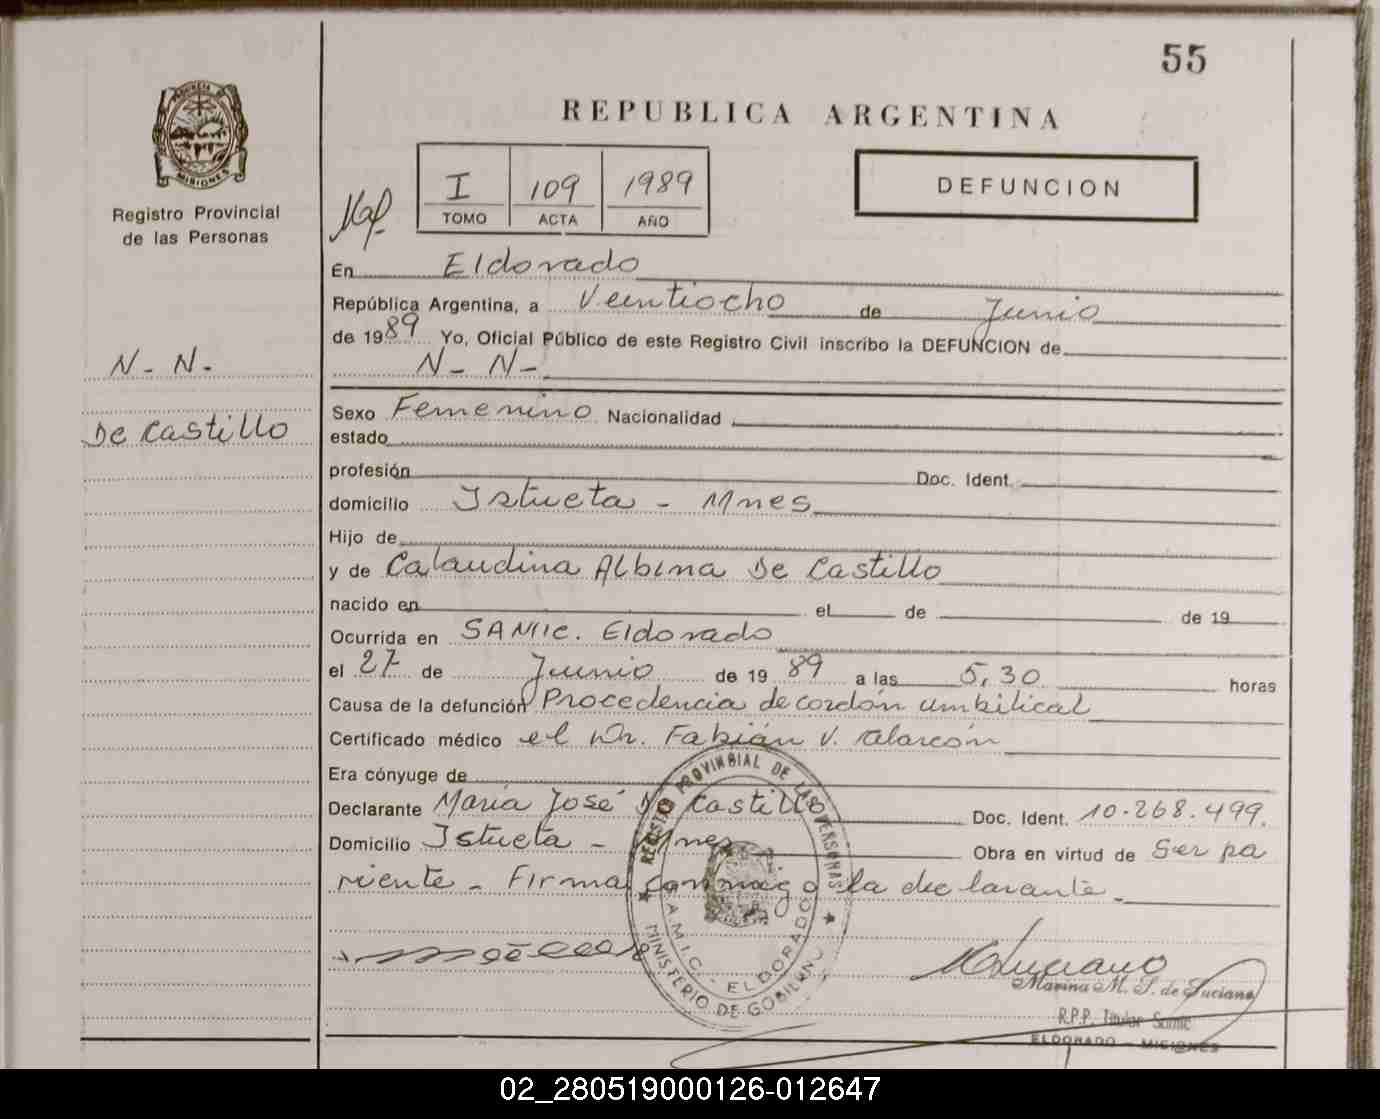 55
REPUBLICA ARGENTINA
PROVINCIA DE
MISIONES
Registro Provincial
de las Personas
I 109 1989
TOMO ACTA AÑO
DEFUNCION
En Eldorado
República Argentina, a Veintiocho de Junio
de 1989 Yo, Oficial Público de este Registro Civil inscribo la DEFUNCION de
N - N -
N - N -
De Castillo
Sexo Femenino Nacionalidad
estado
profesión Doc. Ident.
domicilio Istueta - Mnes
Hijo de
y de Calaudina Albina De Castillo
nacido en el de de 19
Ocurrida en SAMIC. Eldorado
el 27 de Junio de 1989 a las 5,30 horas
Causa de la defunción Procedencia de cordón umbilical
Certificado médico el Dr. Fabián V. Alarcón
Era cónyuge de
Declarante María José De Castillo Doc. Ident. 10.268.499.
Domicilio Istueta - Mnes Obra en virtud de Ser pa
riente - Firma conmigo la declarante -
REGISTRO PROVINCIAL DE LAS PERSONAS
S.A.M.I.C. - ELDORADO
MINISTERIO DE GOBIERNO
M Luciano
Marina M. S. de Luciano
R.P.P. Titular Samic
ELDORADO - MISIONES
02_280519000126-012647